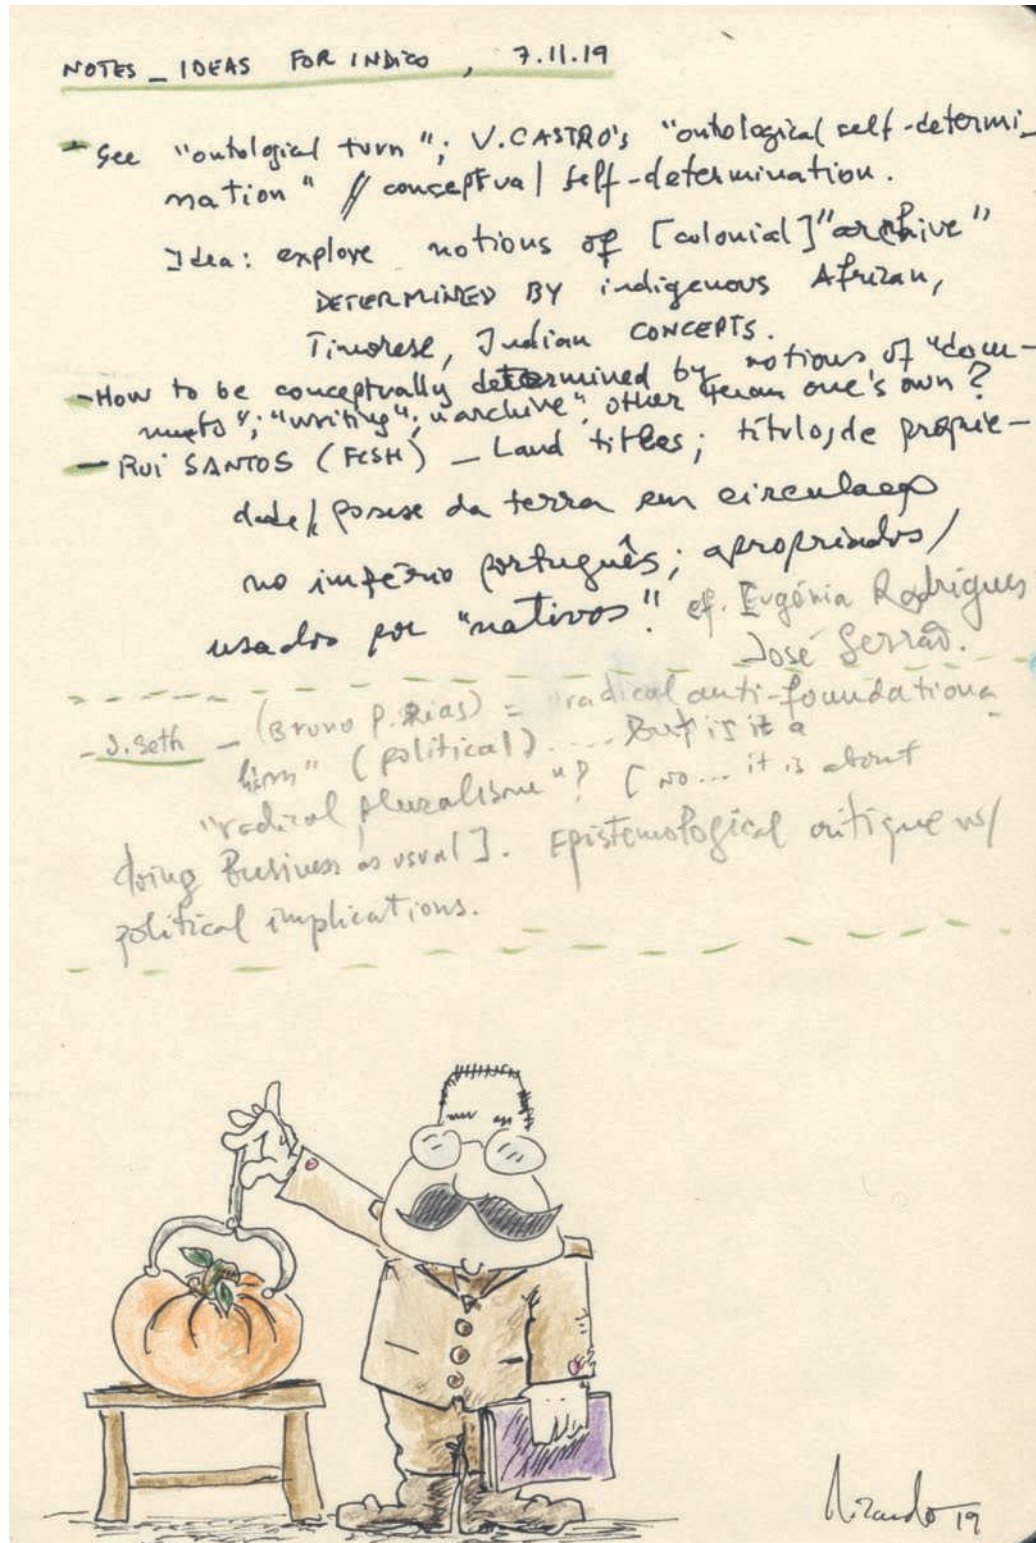 NOTES _ IDEAS FOR INDICO, 7.11.19
- See "ontological turn"; V. CASTRO's "ontological self-determi-
nation" // conceptual self-determination.
Idea: explore notions of [colonial] "archive"
DETERMINED BY indigenous African,
Timorese, Indian CONCEPTS.
- How to be conceptually determined by notions of "docu-
ments"; "writing"; "archive" other than one's own?
- Rui SANTOS (FCSH) _ Land titles; títulos de proprie-
dade / posse da terra em circulação
no império português; apropriados /
usados por "nativos"! cf. Eugénia Rodrigues
José Serrão.
- S. Seth - (Bruno P. Dias) = "radical anti-foundationa
lism" (political).... But is it a
"radical pluralism"? [no... it is about
doing Business as usual]. Epistemological critique vs/
political implications.
Ricardo 19